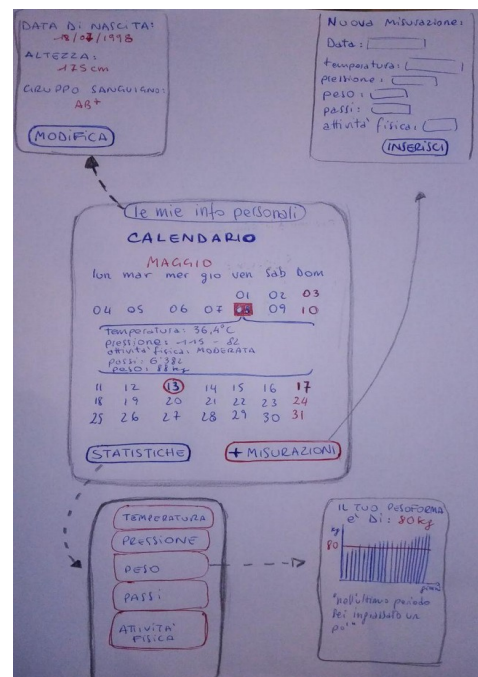 DATA DI NASCITA:
18/07/1998
ALTEZZA:
175 cm
GRUPPO SANGUIGNO:
AB+
MODIFICA
Nuova Misurazione:
Data:
temperatura:
pressione:
peso:
passi:
attività fisica:
INSERISCI
le mie info personali
CALENDARIO
MAGGIO
lun mar mer gio ven sab Dom
01 02 03
04 05 06 07 08 09 10
Temperatura: 36,4°C
pressione: 115 - 82
attività fisica: MODERATA
passi: 6'382
peso: 88 kg
11 12 13 14 15 16 17
18 19 20 21 22 23 24
25 26 27 28 29 30 31
STATISTICHE
+ MISURAZIONI
TEMPERATURA
PRESSIONE
PESO
PASSI
ATTIVITA'
FISICA
IL TUO PESOFORMA
e' Di: 80kg
kg
80
"nell'ultimo periodo
sei ingrassato un
po'"